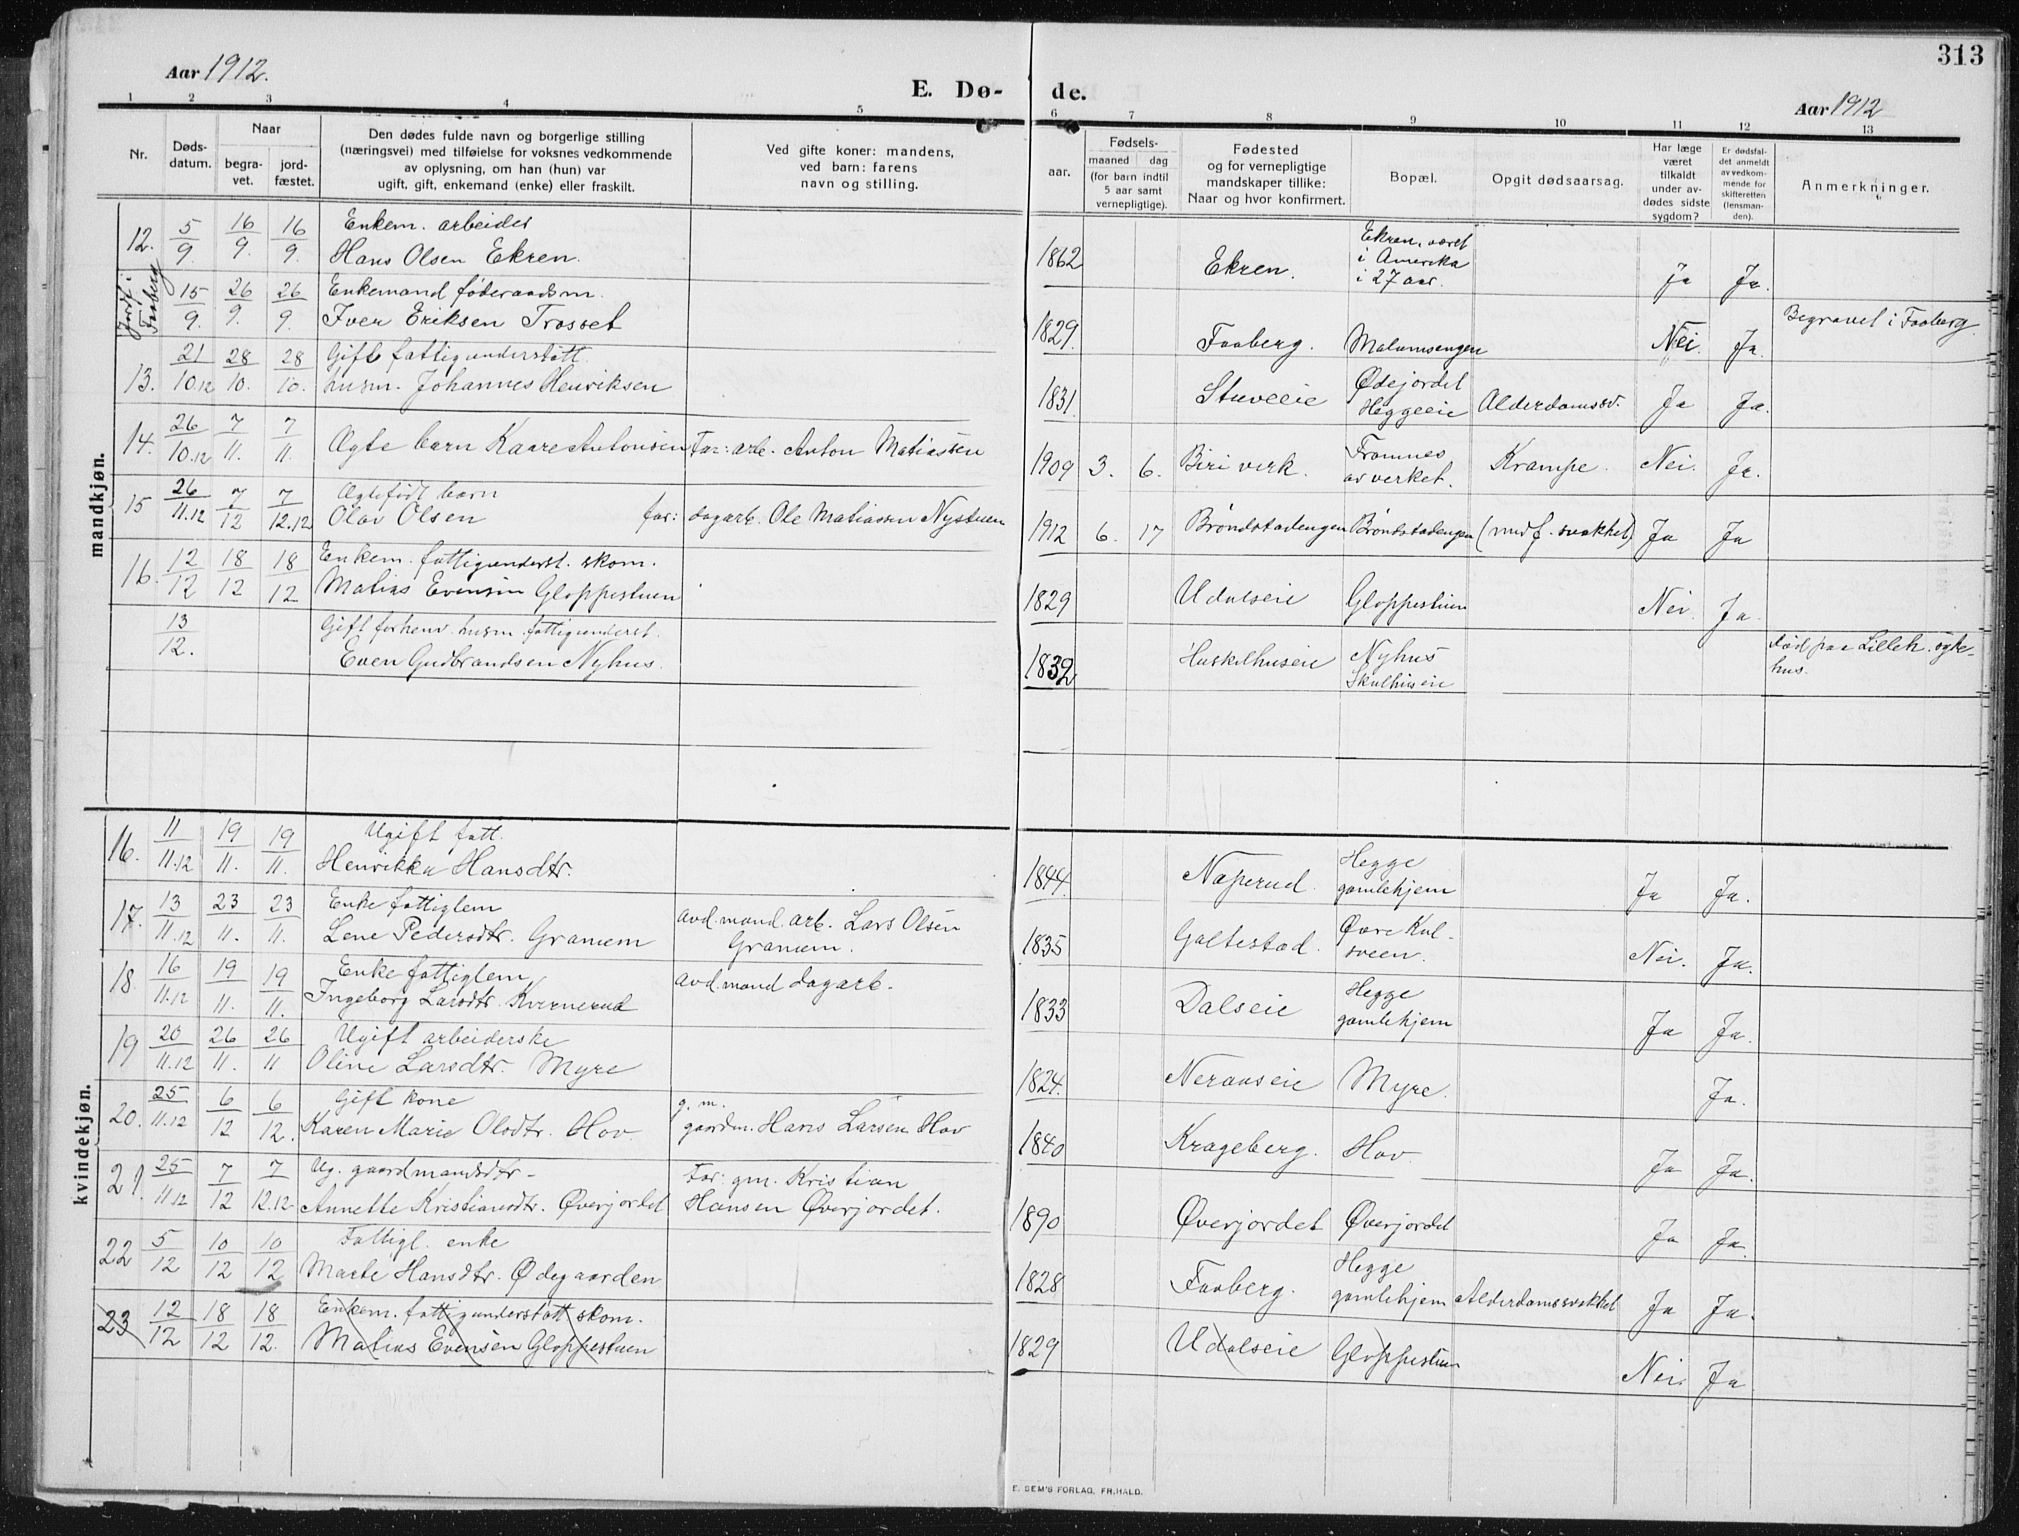 313
Aar 1912.
E. Dø- de.
Aar 1912
1 2 3 4 5 6 7 8 9 10 11 12 13
Nr.
Døds-
datum.
Naar
begra-
vet.
jord-
fæstet.
Den dødes fulde navn og borgerlige stilling
(næringsvei) med tilføielse for voksnes vedkommende
av oplysning, om han (hun) var
ugift, gift, enkemand (enke) eller fraskilt.
Ved gifte koner: mandens,
ved barn: farens
navn og stilling.
aar.
Fødsels-
maaned dag
(for barn indtil
5 aar samt
vernepligtige).
Fødested
og for vernepligtige
mandskaper tillike:
Naar og hvor konfirmert.
Bopæl.
Opgit dødsaarsag.
Har læge
været
tilkaldt
under av-
dødes sidste
sygdom?
Er dødsfal-
det anmeldt
av vedkom-
mende for
skifteretten
(lensman-
den).
Anmerkninger.
mandkjøn.
12. 5/9 16/9. 16/9. Enkem. arbeider
Hans Olsen Ekren. 1862 Ekren. Ekren, været
i Amerika
i 27 aar. Ja Ja.
Jordf. i
Faaberg 15/9. 26/9. 26/9. Enkemand føderaadsm.
Iver Eriksen Trosset 1829. Faaberg. Malumsengen Nei. Ja. Begravet i Faaberg
13. 21/10.12 28/10. 28/10. Gift fattigunderstøtt.
husm. Johannes Henriksen 1831. Stuveeie Ødejordet
Heggeeie Alderdomssv. Ja Ja.
14. 26/10.12 7/11. 7/11. Ægte barn Kaare Antonsen Far: arb. Anton Matiassen 1909 3. 6. Biri verk. Fromnes
av verket. Krampe. Nei. Ja.
15 26/11.12 7/12 7/12.12 Ægtefødt barn
Olav Olsen far: dagarb. Ole Matiassen Nystuen 1912 6. 17 Brøndstadengen Brøndstadengen (medf. svakhet) Ja Ja
16. 12/12 18/12 18/12 Enkem. fattigunderst. skom.
Matias Evensen Gloppestuen 1829 Udalseie Gloppestuen Nei. Ja.
13/12. Gift forhenv. husm. fattigunderst.
Even Gudbrandsen Nyhus. 1832 Huskelhuseie Nyhus
Skulhuseie Død paa Lilleh. syke-
hus.
kvindekjøn.
16. 11/11.12 19/11. 19/11. Ugift fatt.
Henrikka Hansdtr. 1844. Næperud. Hegge
gamlehjem Ja Ja.
17. 13/11.12 23/11. 23/11. Enke fattiglem
Lene Pedersdtr. Granum avd. mand arb. Lars Olsen
Granum. 1835 Galtestad. Øvre Kul-
sveen. Nei. Ja.
18. 16/11.12 19/11. 19/11. Enke fattiglem
Ingeborg Larsdtr. Kvernerud avd. mand dagarb. 1833 Dalseie Hegge
gamlehjem Ja Ja.
19 20/11.12 26/11. 26/11 Ugift arbeiderske
Oline Larsdtr. Myre 1824. Neraaseie Myre. Ja.
20. 25/11.12 6/12 6/12. Gift kone
Karen Marie Olsdtr. Hov. g. m.
gaardm. Hans Larsen Hov 1840 Krageberg. Hov. Ja Ja.
21. 25/11.12 7/12 7/12.12 Ug. gaardmandsdtr-
Annette Kristiansdtr. Øverjordet Far: gm. Kristian
Hansen Øverjordet. 1890 Øverjordet Øverjordet Ja Ja.
22 5/12 10/12 10/12 Fattigl. enke
Marte Hansdtr. Ødegaarden 1828 Faaberg. Hegge
gamlehjem Alderdomssvakhet Ja Ja.
23 12/12 18/12 18/12. Enkem. fattigunderstøtt skom.
Matias Evensen Gloppestuen 1829 Udalseie Gloppestuen Nei. Ja
E. SEM'S FORLAG, FR.HALD.